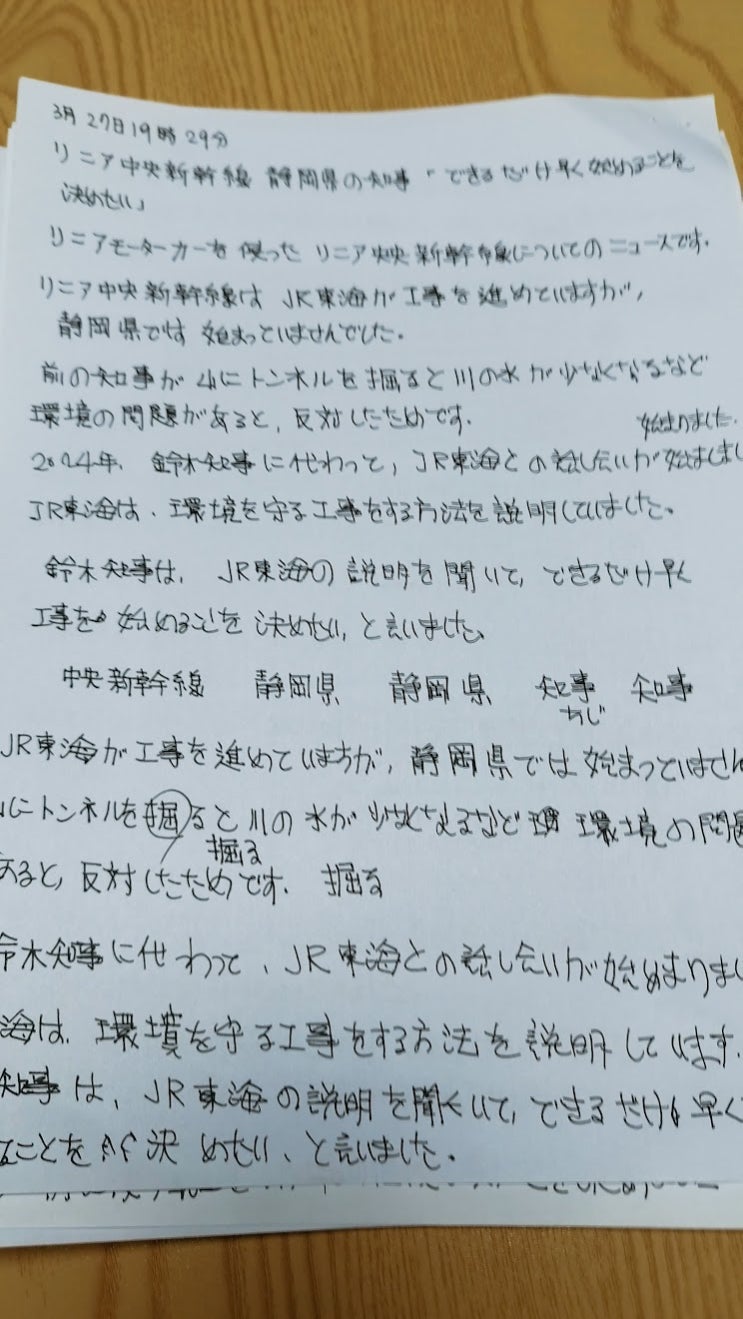 3月27日19時29分
リニア中央新幹線 静岡県の知事「できるだけ早く始めることを
決めたい」
リニアモーターカーを使った リニア中央新幹線についてのニュースです。
リニア中央新幹線は JR東海が工事を進めていますが、
静岡県では 始まっていませんでした。
前の知事が 山にトンネルを掘ると川の水が少なくなるなど
環境の問題があると、反対したためです。
始まりました。
2024年、鈴木知事に代わって、JR東海との話し合いが始まし
JR東海は、環境を守る工事をする方法を説明していました。
鈴木知事は、JR東海の説明を聞いて、できるだけ早く
工事を 始めることを 決めたい、と言いました。
中央新幹線 静岡県 静岡県 知事 知事
ちじ
JR東海が工事を進めていますが、静岡県では始まっていません
にトンネルを掘ると川の水が少なくなるなど 環 環境の問題
掘る
あると、反対したためです。 掘る
鈴木知事に代わって、JR東海との話し合いが始めまりまし
海は、環境を守る工事をする方法を説明しています。
知事は、JR東海の説明を聞いて、できるだけ早く
ことを 決めたい、と言いました。